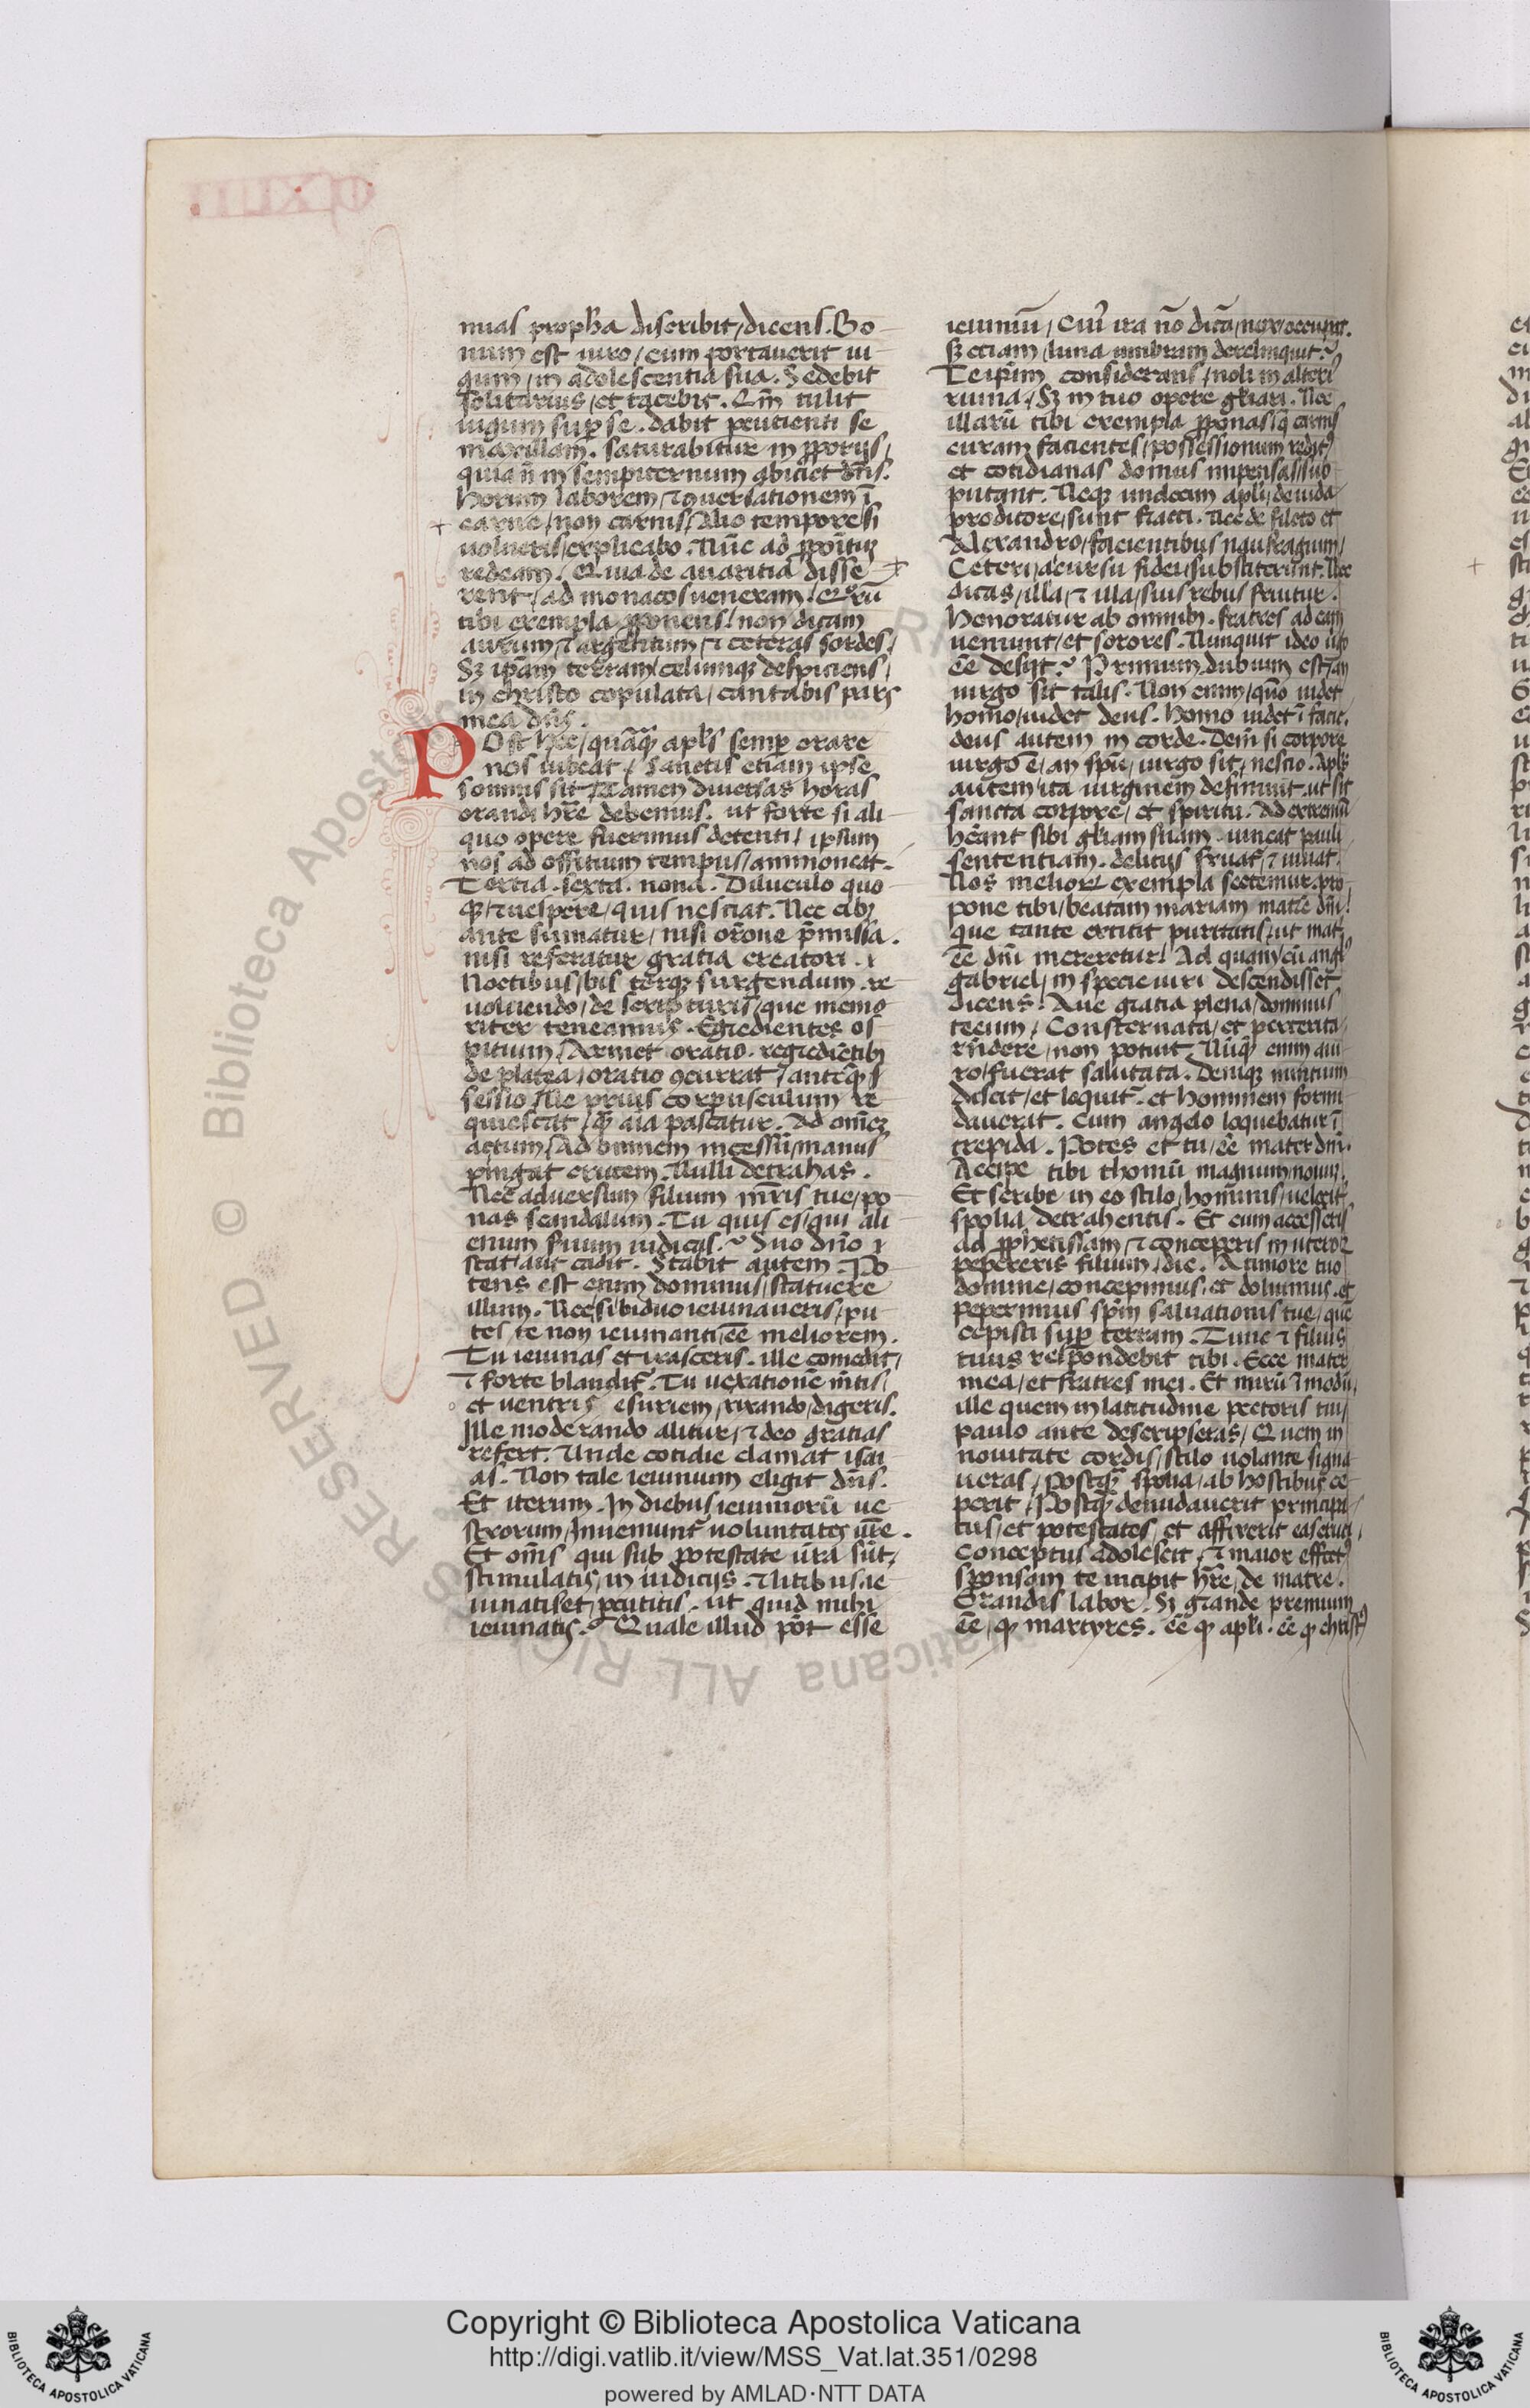 mias proph̄a discribit/dicens. Bo
num est uiro/cum portauerit iu
gum/in adolescentia sua. Sedebit
solitarius/et tacebit. Qm̄ tulit
iugum sup̱ se. dabit pcutienti se
maxillam. saturabitur in ꝓbrijs/
quia n̄ in sempiternum abiciet dn̄s.
horum laborem/⁊ ꝯuersationem ī
carne/non carnis/Alio tempore/si
uolueris/explicabo. Nūc ad ꝓpoītuꝫ
redeam. Quia de auaritia disse
rens/ad monacos ueneram/Quorū
tibi exempla ꝓponens/non dicam
aurum/⁊ argentum/⁊ ceteras sordes/
Sꝫ ip̄am terram/celumqꝫ despiciens/
in christo copulata/cantabis pars
mea dn̄s.
POst hec/quāqꝫ apl̄s semp̱ orare
nos iubeat/Sanctis etiam ipse
somnus sit/⁊ Tamen diuersas horas
orandi hr̄e debemus. ut forte si ali
quo opere fuerimus detenti/ipsum
nos ad offitium tempus/ammoneat.
Tertia. sexta. nona. Diluculo quo
qꝫ/⁊ uespere/quis nesciat. Nec cibꝫ
ante sumatur/nisi or̄one p̄missa.
nisi referatur gratia creatori.
Noctibus/bis terqꝫ surgendum. re
uoluendo/de scripturis/que memo
riter teneamus. Egredientes os
pitium/Armet oratio. regrediētibꝫ
de platea/oratio ꝯcurrat/anteqꝫ
sessio. Ne prius corpusculum re
quiescat/qꝫ aīa pascatur. Ad om̄eꝫ
actum/Ad omnem incessū/manus
pingat crucem. Nulli detrahas.
Nec aduersum filium mr̄is tue/po
nas scandalum. Tu quis es/qui ali
enum seruum iudicas? Suo dn̄o
stat/aut cadit. Stabit autem. Po
tens est enim dominus/statuere
illum. Nec/si biduo ieiunaueris/pu
tes te non ieiunanti/ēē meliorem.
Tu ieiunas et irasceris. ille comedit/
⁊ forte blandit᷑. Tu uexationē m̄tis/
et uentris esuriem/rixando/digeris.
Ille moderando alitur/⁊ deo gratias
refert. Unde cotidie clamat isai
as. Non tale ieiunium eligit dn̄s.
Et iterum. In diebus/ieiuniorū ue
strorum/Inueniunt᷑ uoluntates ur̄e.
Et om̄s qui sub potestate ur̄a sūt/
stimulatis/in iudicijs. ⁊ litibus/ie
iunatis/et pcutitis. ut quid mihi
ieiunatis? Quale illud pōt esse
ieiuniū/Cui᷑ ira nō dicā/nox/occupat.
Sꝫ etiam/luna umbram derelinquit?
Teip̄m considerans/noli in alteri᷑
ruina/Sꝫ in tuo opere gl̄iari. Nec
illarū tibi exempla ꝓponas/q̄ carnis
curam facientes/possessionum redit᷑
et cotidianas domus impensas/sup
putant. Neqꝫ undecim apl̄i/de iuda
proditore/sunt fracti. Nec de fileto et
Alexandro/facientibus naufragium/
Ceteri/a cursu fidei/substiterunt. Nec
dicas/illa/⁊ illa/suis rebus fruitur.
honoratur ab omnibꝫ. fratres ad eam
ueniunt/et sorores. Nunquit ideo uirgo
ēē desijt? Primum/dubium est/an
uirgo sit talis. Non enim/quō uidet
homo/uidet deus. homo uidet ī facie.
deus autem in corde. Deīn si corpore
uirgo ē/an spū/uirgo sit/nescio. Apl̄s
autem ita uirginem definiuit. ut sit
sancta corpore/et spiritu. Ad extremū
heānt sibi gl̄iam suam. uincat pauli
sententiam. delitijs fruat᷑/⁊ uiuat.
Nos meliora exempla sectemur. pro
pone tibi/beatam mariam matrē dn̄i/
que tante extitit puritatis/ut mat᷑
ēē dn̄i mereretur/Ad quam/cū angl̄s
gabriel/in specie uiri descendisset
dicens. Aue gratia plena/dominus
tecum/Consternata/et perterrita/
rn̄dere/non potuit. Nūqꝫ enim a ui
ro/fuerat salutata. Deniqꝫ nuntium
discit/et loquit᷑. et hominem formi
dauerat. Cum angelo loquebatur ī
trepida. Potes et tu/ēē mater dn̄i.
Accipe tibi thomū magnum/nouuꝫ.
Et scribe in eo stilo/hominis/uelocit᷑
spolia detrahentis. Et cum accesseris
ad ꝓphetissam/⁊ conceperis in utero/⁊
pepereris filium/dic. A timore tuo
domine/concepimus. et doluimus. et
peperimus spm̄ saluationis tue/quē
cepisti sup̱ terram. Tunc ⁊ filius
tuus respondebit tibi. Ecce mater
mea/et fratres mei. Et mirū ī modū/
ille quem in latitudine pectoris tui/
paulo ante descripseras/Quem in
nouitate cordis/stilo uolante signa
ueras/postqꝫ spolia/ab hostibus ce
perit/Postqꝫ denudauerit principa
tus/et potestates/et affixerit eas cruci/
Conceptus adolescit/⁊ maior effect᷑
sponsam te incipit hr̄e/de matre.
Grandis labor. Sꝫ grande premium
ēē/qꝫ martyres. ēē qꝫ apl̄i. ēē qꝫ christ᷑
© Biblioteca Apostolica Vaticana ALL RIGHTS RESERVED
Copyright © Biblioteca Apostolica Vaticana
http://digi.vatlib.it/view/MSS_Vat.lat.351/0298
powered by AMLAD·NTT DATA
BIBLIOTECA APOSTOLICA VATICANA
BIBLIOTECA APOSTOLICA VATICANA